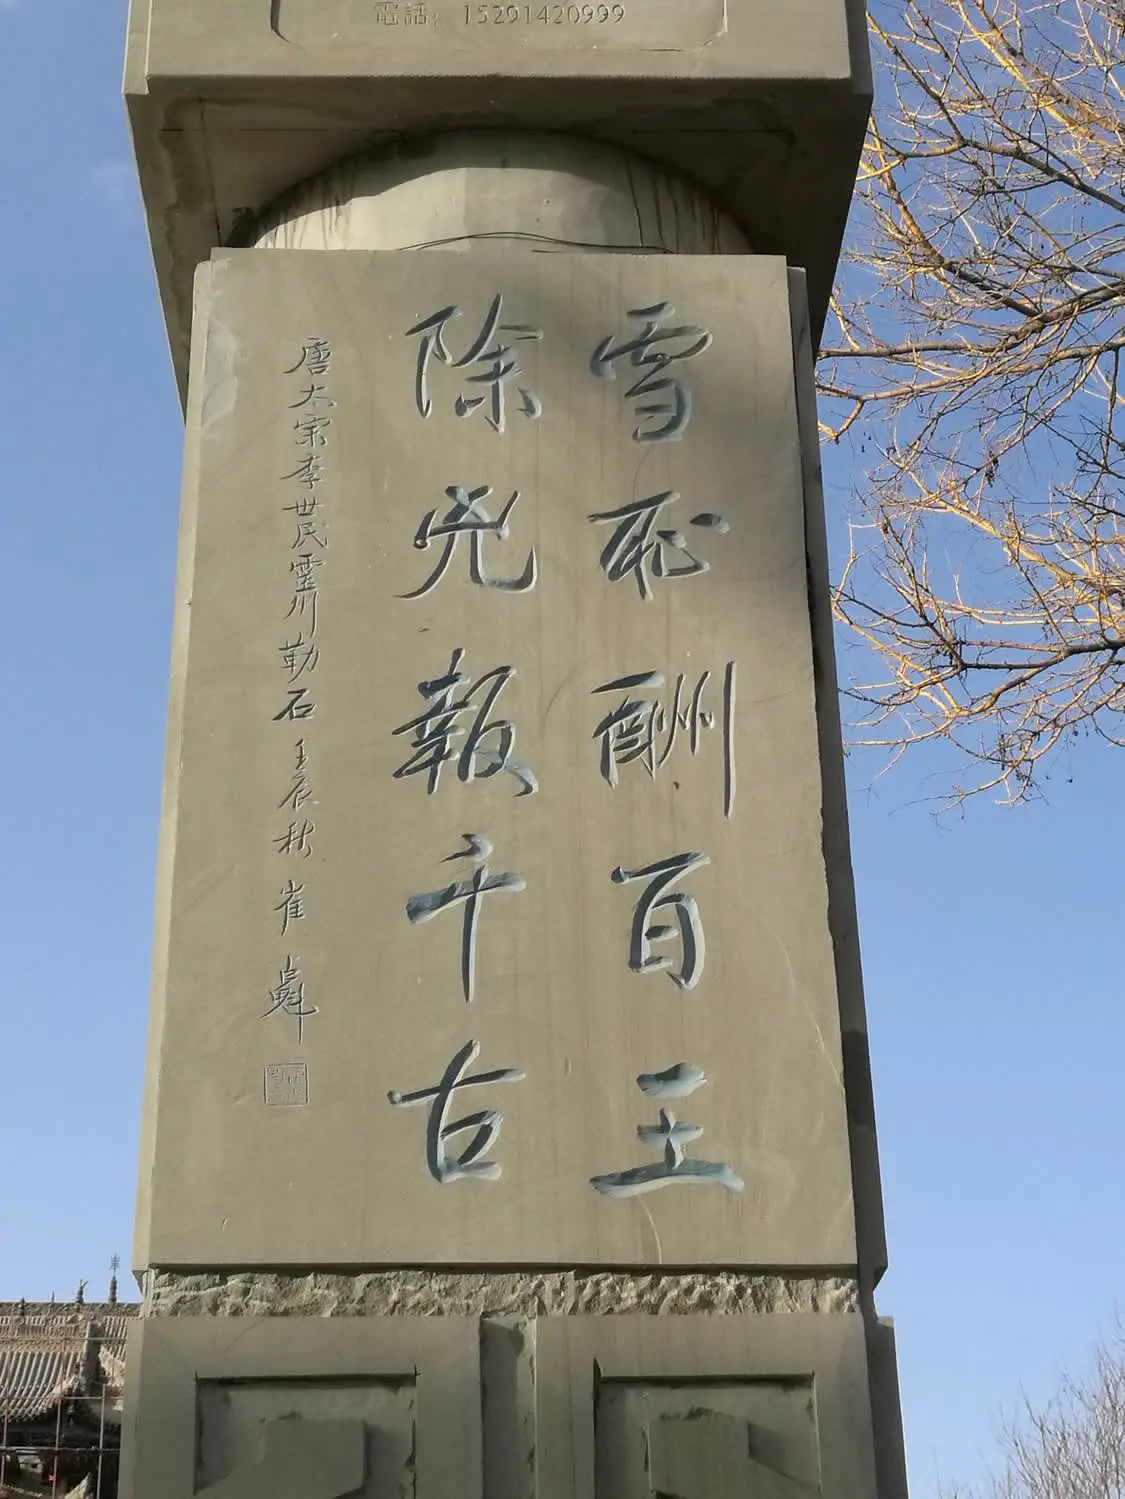 電話：15291420999
雪恥酬百王
除兇報千古
唐太宗李世民靈川勒石 壬辰秋 崔